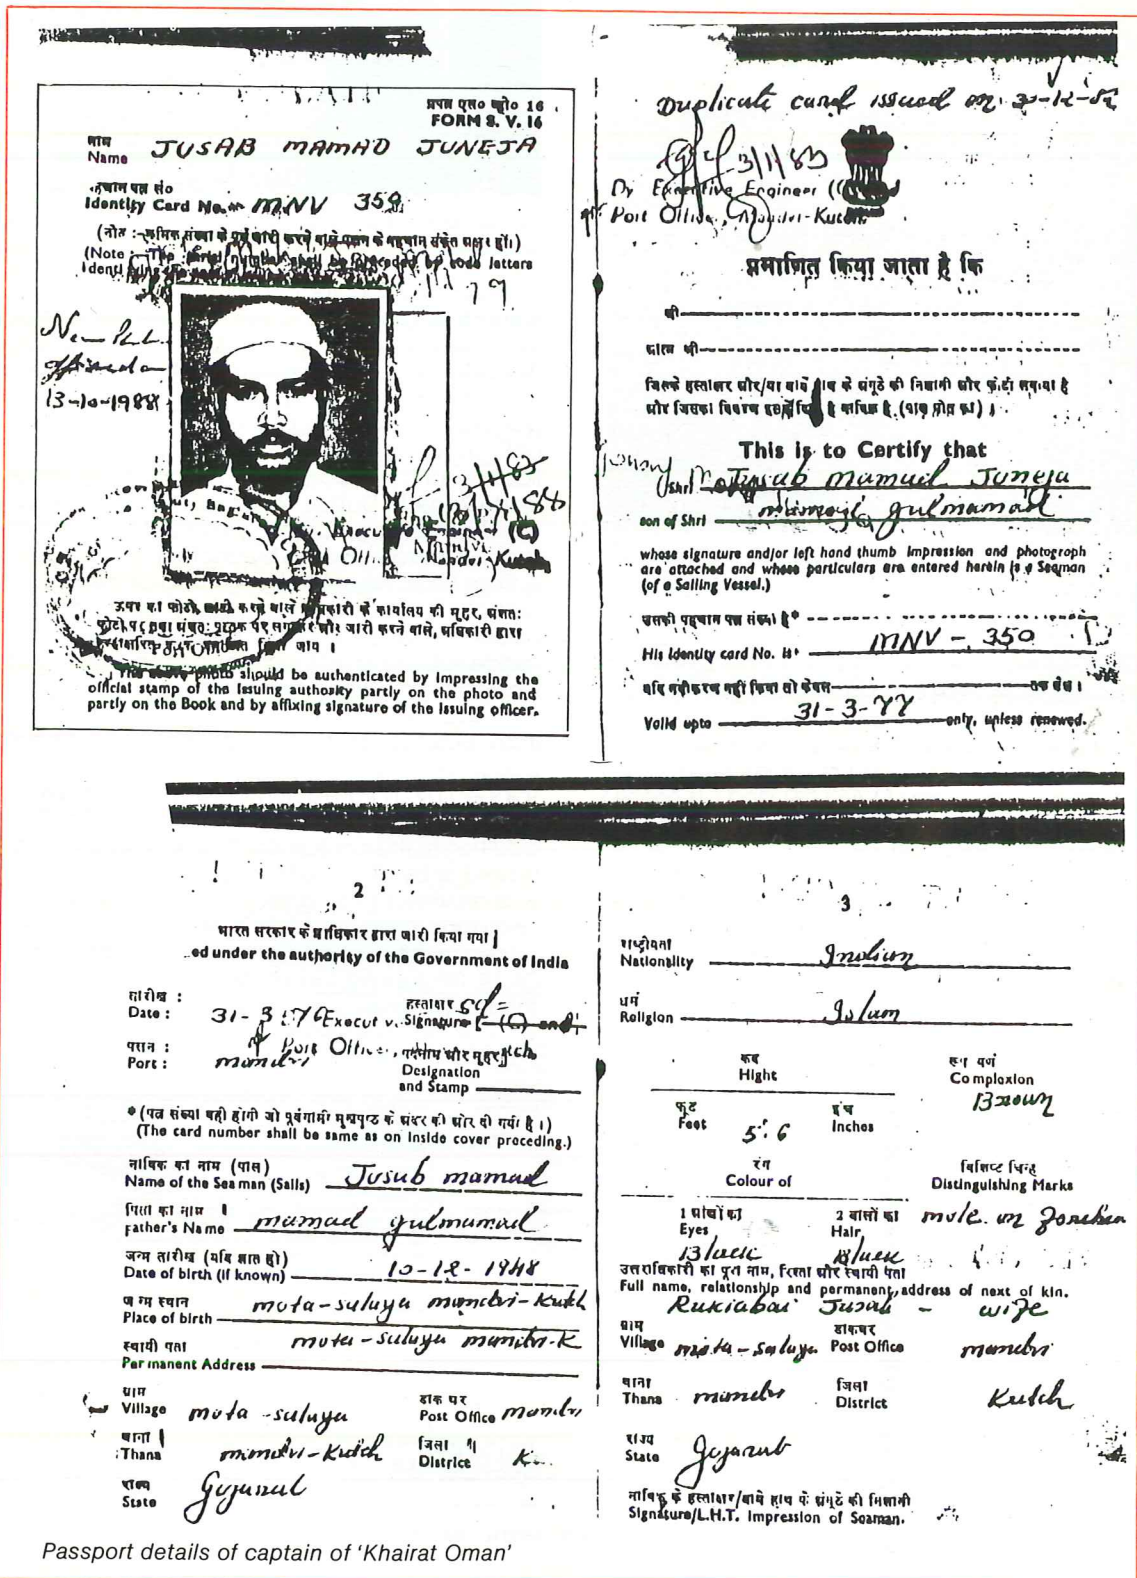 प्रपत्र एस० व्ही० 16
FORM S. V. 16
नाम
Name JUSAB MAMAD JUNEJA
पहचान पत्र सं०
Identity Card No. MNV 350
(नोट :
(Note : The serial number shall be preceded by code letters
New Photo
affixed on
13-10-1988
3/1/83
Executive Engineer (C)
Port Office Mandvi-Kutch
ऊपर का फोटो, जारी करने वाले अधिकारी के कार्यालय की मुहर, अंशत:
फोटो पर तथा अंशत: पुस्तक पर लगाकर और जारी करने वाले, अधिकारी द्वारा
जाय ।
The above photo should be authenticated by impressing the
official stamp of the issuing authority partly on the photo and
partly on the Book and by affixing signature of the issuing officer.
Duplicate card issued on 30-12-82
3/1/83
Dy Executive Engineer (C)
Port Office, Mandvi-Kutch
प्रमाणित किया जाता है कि
श्री
आत्म श्री
जिसके हस्ताक्षर और/या बायें हाथ के अंगूठे की निशानी और फोटो लगाया है
और जिसका विवरण इसमें
This is to Certify that
Shri Jusab Mamad Juneja
son of Shri gulmamad
whose signature and/or left hand thumb impression and photograph
are attached and whose particulars are entered herein is a Seaman
(of a Sailing Vessel.)
उसकी पहचान पत्र संख्या है*
His identity card No. is* MNV - 350
यदि नवीकरण नहीं किया तो केवल तक वैध ।
Valid upto 31-3-77 only, unless renewed.
2
भारत सरकार के प्राधिकार द्वारा जारी किया गया
ed under the authority of the Government of India
तारीख :
Date : 31-3
हस्ताक्षर
Signature
पत्तन :
Port : mandvi
Port Office,
पदनाम और मुहर
Designation
and Stamp
*(पत्र संख्या वही होगी जो पूर्वगामी मुखपृष्ठ के अंदर की ओर दी गयी है।)
(The card number shall be same as on inside cover preceding.)
नाविक का नाम (पाल)
Name of the Seaman (Sails) Jusub mamad
पिता का नाम
Father's Name mamad gulmamad
जन्म तारीख (यदि ज्ञात हो)
Date of birth (if known) 10-12-1948
जन्म स्थान
Place of birth mota-salaya mandvi-Kutch
स्थायी पता
Permanent Address mota-salaya mandvi-K
ग्राम
Village mota-salaya
डाक घर
Post Office Mandvi
थाना
Thana mandvi-Kutch
जिला
District K
राज्य
State Gujarat
3
राष्ट्रीयता
Nationality Indian
धर्म
Religion Islam
कद
Hight
रूप वर्ण
Complexion
Brown
फूट
Feet 5'.6
इंच
Inches
रंग
Colour of
विशिष्ट चिन्ह
Distinguishing Marks
1 आंखों का
Eyes
Black
2 बालों का
Hair
Black
mole on
उत्तराधिकारी का पूरा नाम, रिश्ता और स्थायी पता
Full name, relationship and permanent address of next of kin.
Rukiabai Jusab - wife
ग्राम
Village mota-salaya
डाकघर
Post Office mandvi
थाना
Thana mandvi
जिला
District Kutch
राज्य
State Gujarat
नाविक के हस्ताक्षर/बायें हाथ के अंगूठे की निशानी
Signature/L.H.T. Impression of Seaman.
Passport details of captain of 'Khairat Oman'